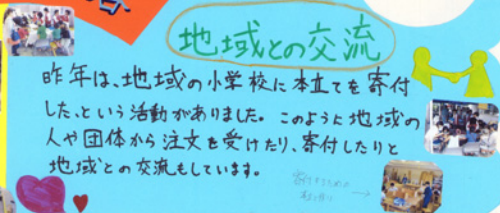 地域との交流
昨年は、地域の小学校に本立てを寄付
した、という活動がありました。このように地域の
人や団体から注文を受けたり、寄付したりと
地域との交流もしています。
寄付するための